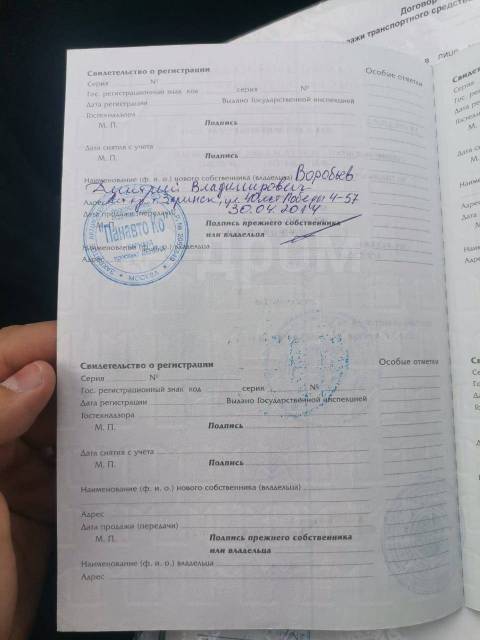 Договор
жи транспортного средства
в лице
Свидетельство о регистрации
Особые отметки
Серия № 
Гос. регистрационный знак код серия №
Дата регистрации Выдано Государственной инспекцией
Гостехнадзора
М. П. Подпись
Дата снятия с учета
М. П. Подпись
Наименование (ф. и. о.) нового собственника (владельца) Воробьев
Дмитрий Владимирович
Адрес г. Заринск, ул. 40 лет Победы 4-57
Дата продажи (передачи) 30.04.2014
Подпись прежнего собственника
или владельца
"Панавто Ко"
МОСКВА
Наименование (ф. и. о.) владельца
Адрес
Свидетельство о регистрации
Особые отметки
Серия №
Гос. регистрационный знак код серия №
Дата регистрации Выдано Государственной инспекцией
Гостехнадзора
М. П. Подпись
Дата снятия с учета
М. П. Подпись
Наименование (ф. и. о.) нового собственника (владельца)
Адрес
Дата продажи (передачи)
М. П. Подпись прежнего собственника
или владельца
Наименование (ф. и. о.) владельца
Адрес